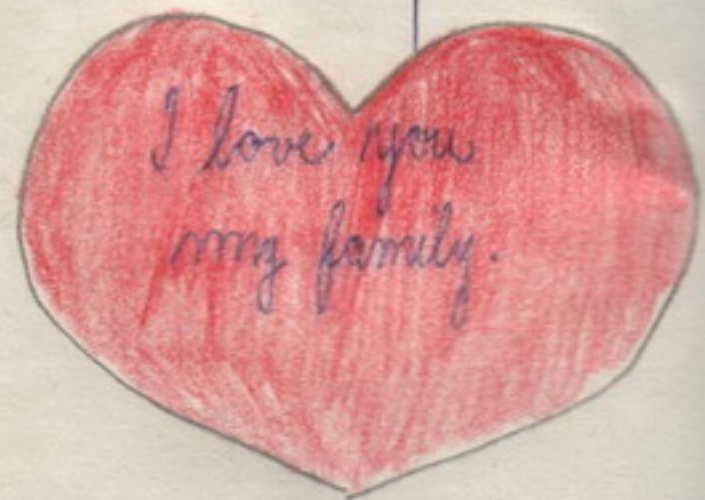 I love you
my family.